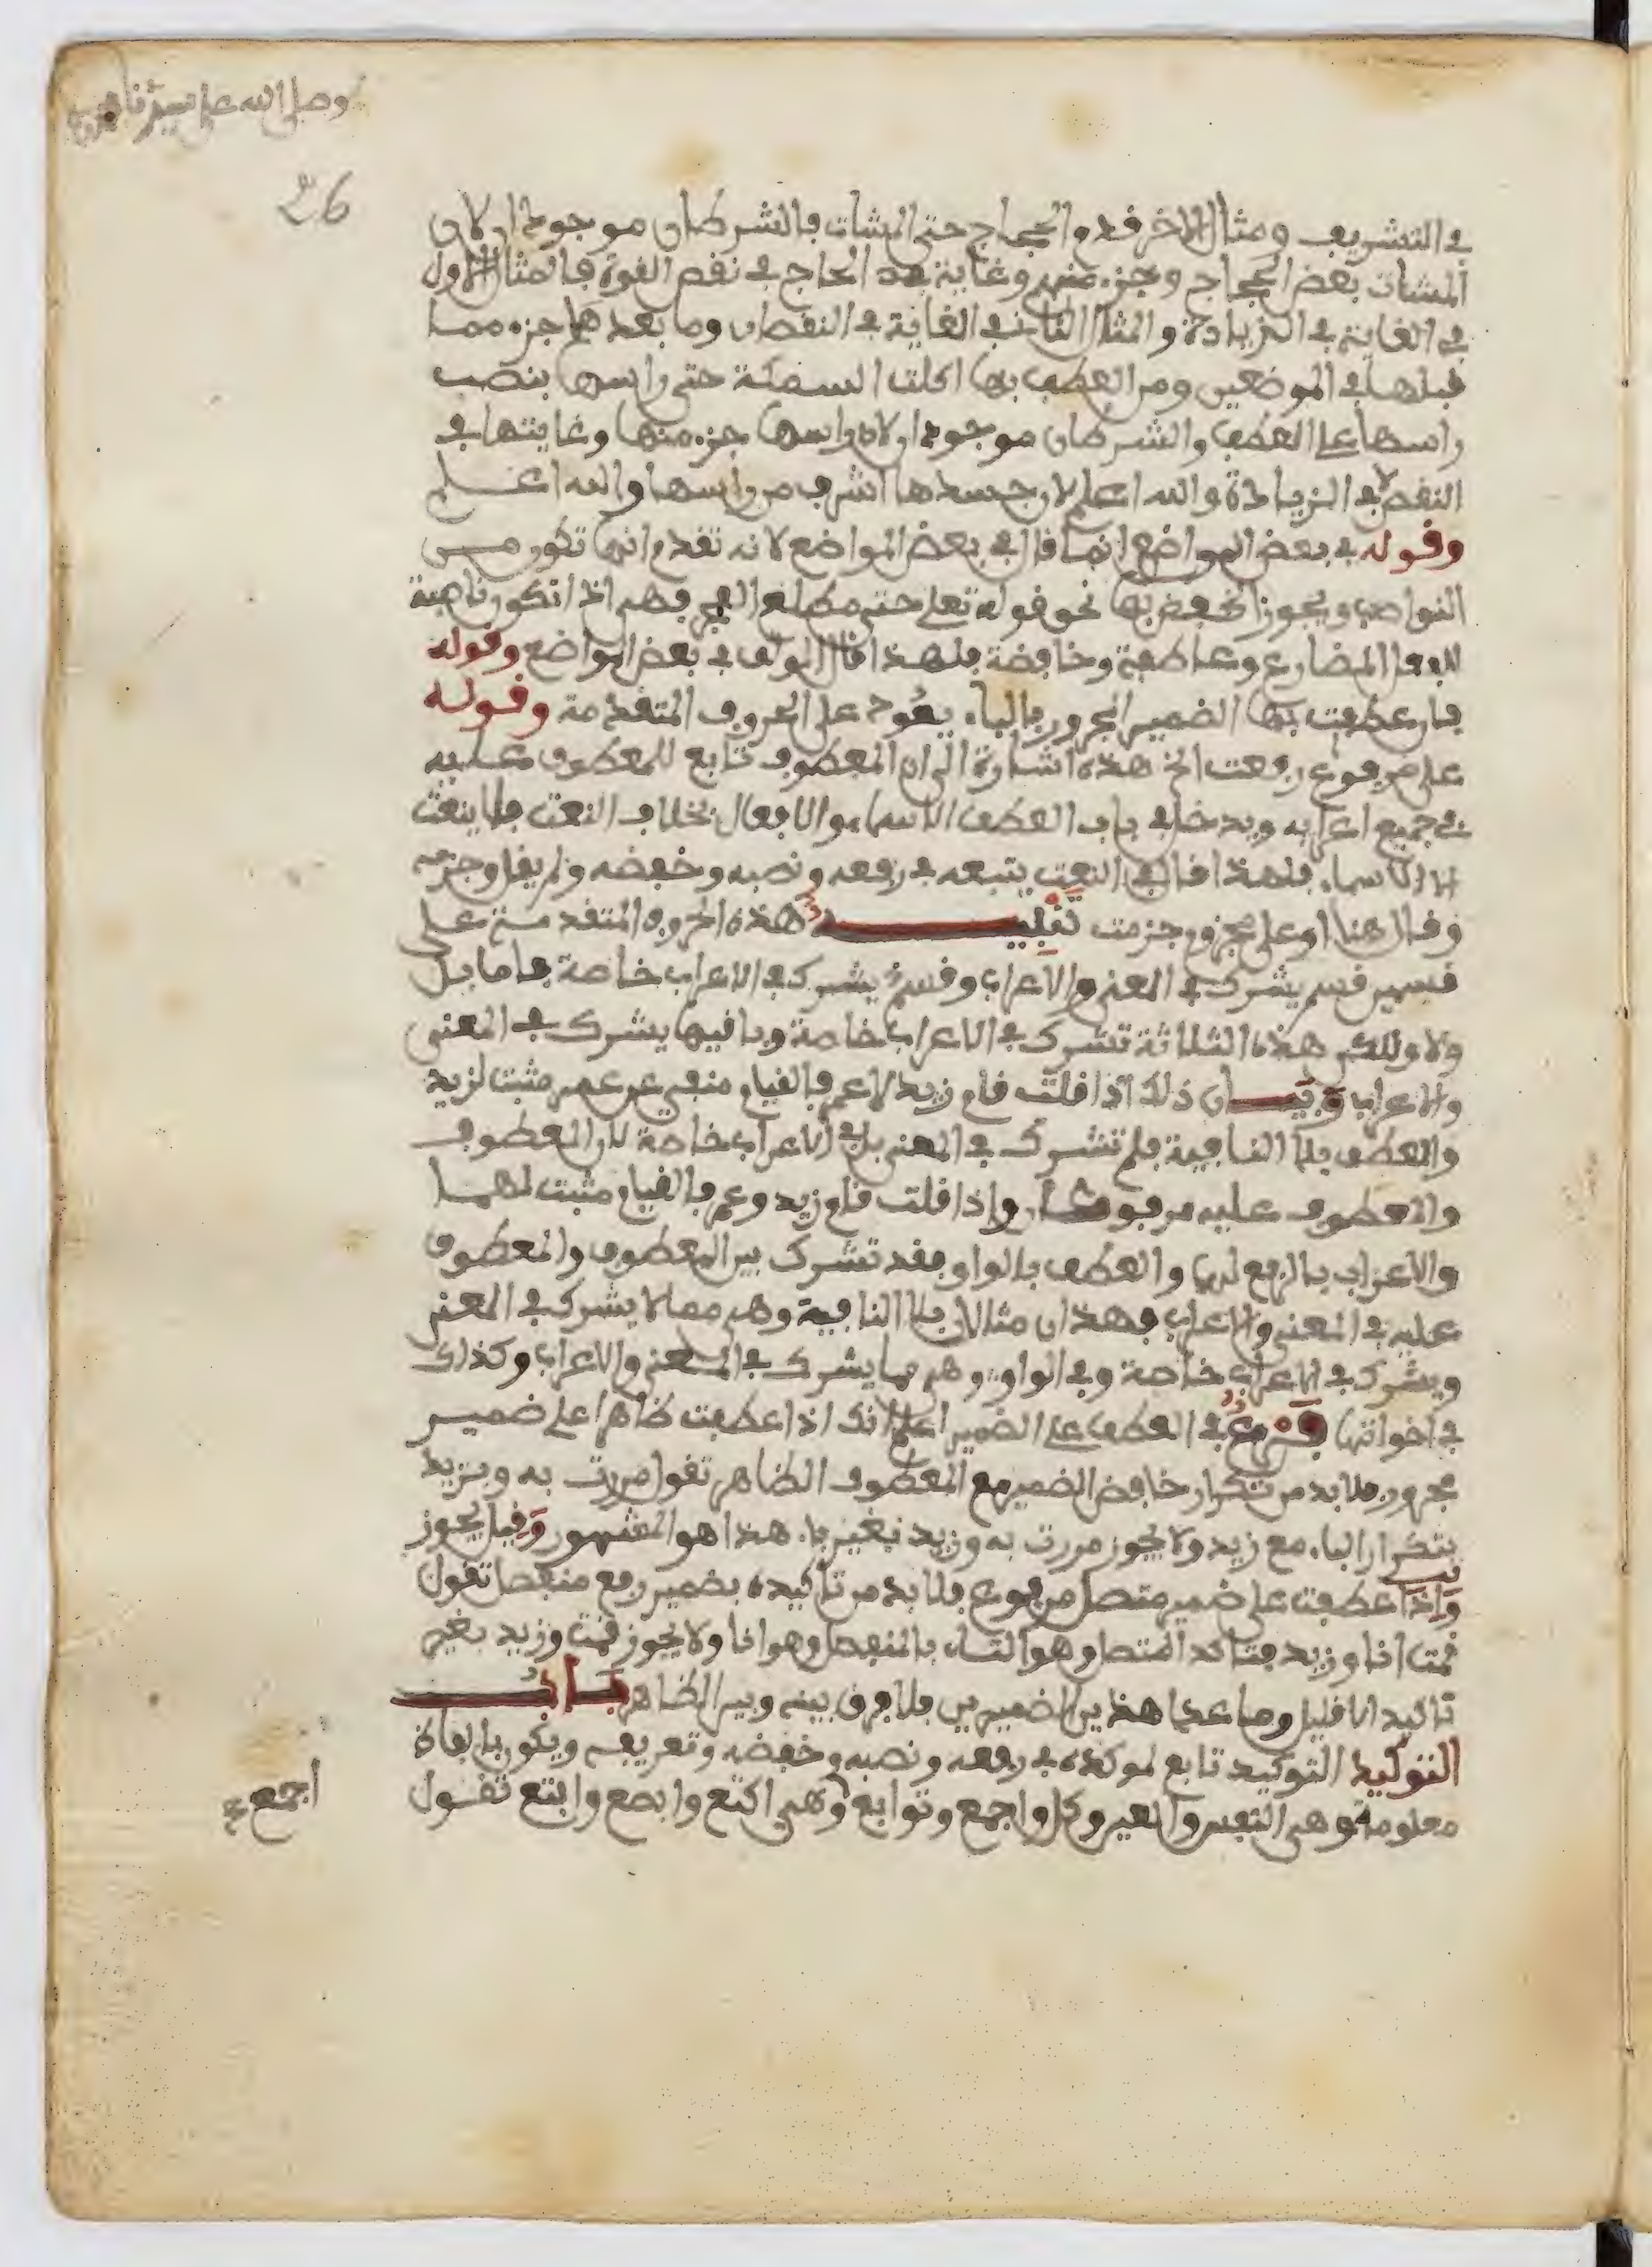 وصلى الله على سيدنا محمد
26
في التشريف ومثال الاخر قدم الحجاج حتى المشاة فالشرطان موجودان لان
المشاة بعض الحجاج وجزء منهم وغاية هذا الحاج في نقص القوة فالمثال الاول
في الغاية في الزيادة والمثال الثاني في الغاية في النقصان وما بعدها جزء مما
قبلها في الموضعين ومن العطف بها اكلت السمكة حتى راسها بنصب
راسها على العطف والشرطان موجودان لان راسها جزء منها وغايتها في
النقص لا في الزيادة والله اعلم لان جسدها اشرف من راسها والله اعلم
وقوله في بعض المواضع انما قال في بعض المواضع لانه تقدم انها تكون من
النواصب ويجوز الخفض بها نحو قوله تعلى حتى مطلع الفجر فهي اذا تكون ناصبة
للفعل المضارع وعاطفة وخافضة فلهذا قال المولف في بعض المواضع وقوله
فان عطفت بها الضمير المجرور بالباء يعود على الحروف المتقدمة وقوله
على مرفوع رفعت الخ هذه اشارة الى ان المعطوف تابع للمعطوف عليه
في جميع اعرابه ويدخل في باب العطف الاسماء والافعال بخلاف النعت فلا ينعت
الا الاسماء فلهذا قال في النعت يتبعه في رفعه ونصبه وخفضه ولم يقل وجزمه
وقال هنا او على مجزوم جزمت تنبيه هذه الحروف المتقدمة على
قسمين قسم يشرك في المعنى والاعراب وقسم يشرك في الاعراب خاصة فاما بل
ولا ولكن هذه الثلاثة تشرك في الاعراب خاصة وباقيها يشرك في المعنى
والاعراب وبيان ذلك اذا قلت قام زيد لا عمر فالقيام منفي عن عمر مثبت لزيد
والعطف بلا النافية فلم تشرك في المعنى بل في الاعراب خاصة لان المعطوف
والمعطوف عليه مرفوعان واذا قلت قام زيد وعمر فالقيام مثبت لهما
والاعراب بالرفع لهما والعطف بالواو فقد تشرك بين المعطوف والمعطوف
عليه في المعنى والاعراب فهذان مثالان بلا النافية وهي مما لا يشرك في المعنى
ويشرك في الاعراب خاصة وفي الواو وهي مما يشرك في المعنى والاعراب وكذلك
في اخواتها فرع في العطف على الضمير اعلم انك اذا عطفت ظاهرا على ضمير
مجرور فلا بد من تكرار خافض الضمير مع المعطوف الظاهر تقول مررت به وبزيد
بتكرار الباء مع زيد ولا يجوز مررت به وزيد بغير باء هذا هو المشهور وقيل يجوز
واذا عطفت على ضمير متصل مرفوع فلا بد من تاكيده بضمير رفع منفصل تقول
قمت انا وزيد فتاكد المتصل وهو التاء بالمنفصل وهو انا ولا يجوز قمت وزيد بغير
تاكيد الا قليل وما عدا هذين الضميرين فلا فرق بينه وبين الظاهر باب
التوكيد التوكيد تابع لموكده في رفعه ونصبه وخفضه وتعريفه ويكون بالفاظ
معلومة وهي النفس والعين وكل واجمع وتوابع وهي اكتع وابصع وابتع تقول
اجمع